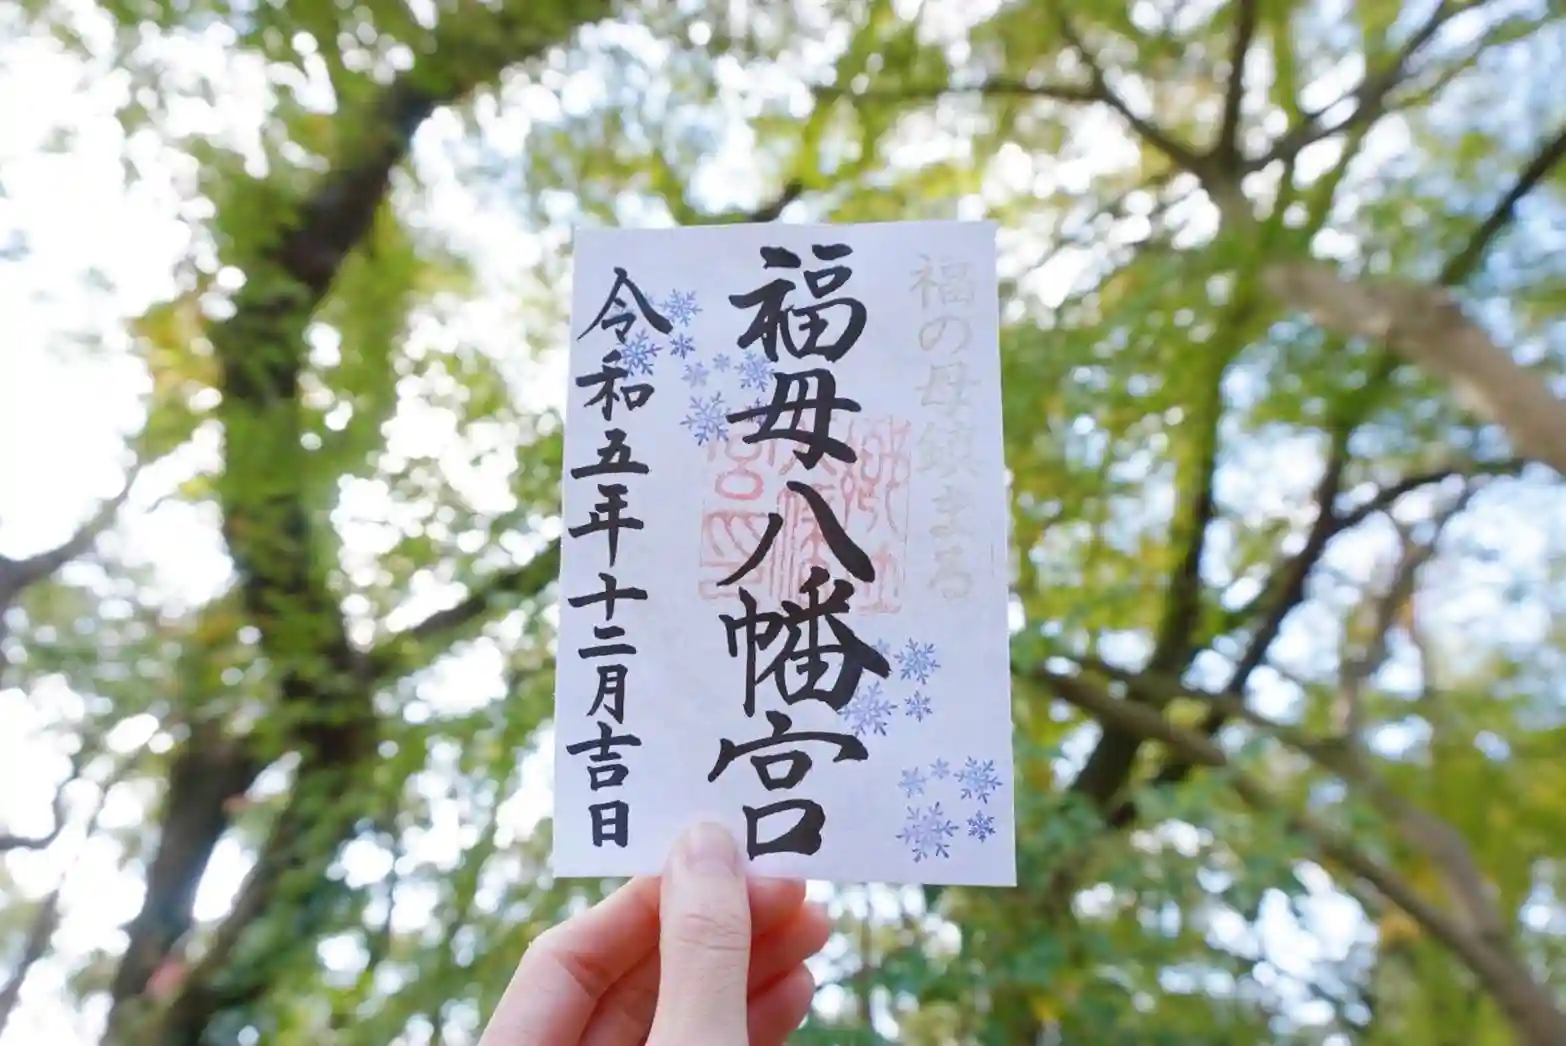 福の母鎮まる
福母八幡宮
令和五年十二月吉日